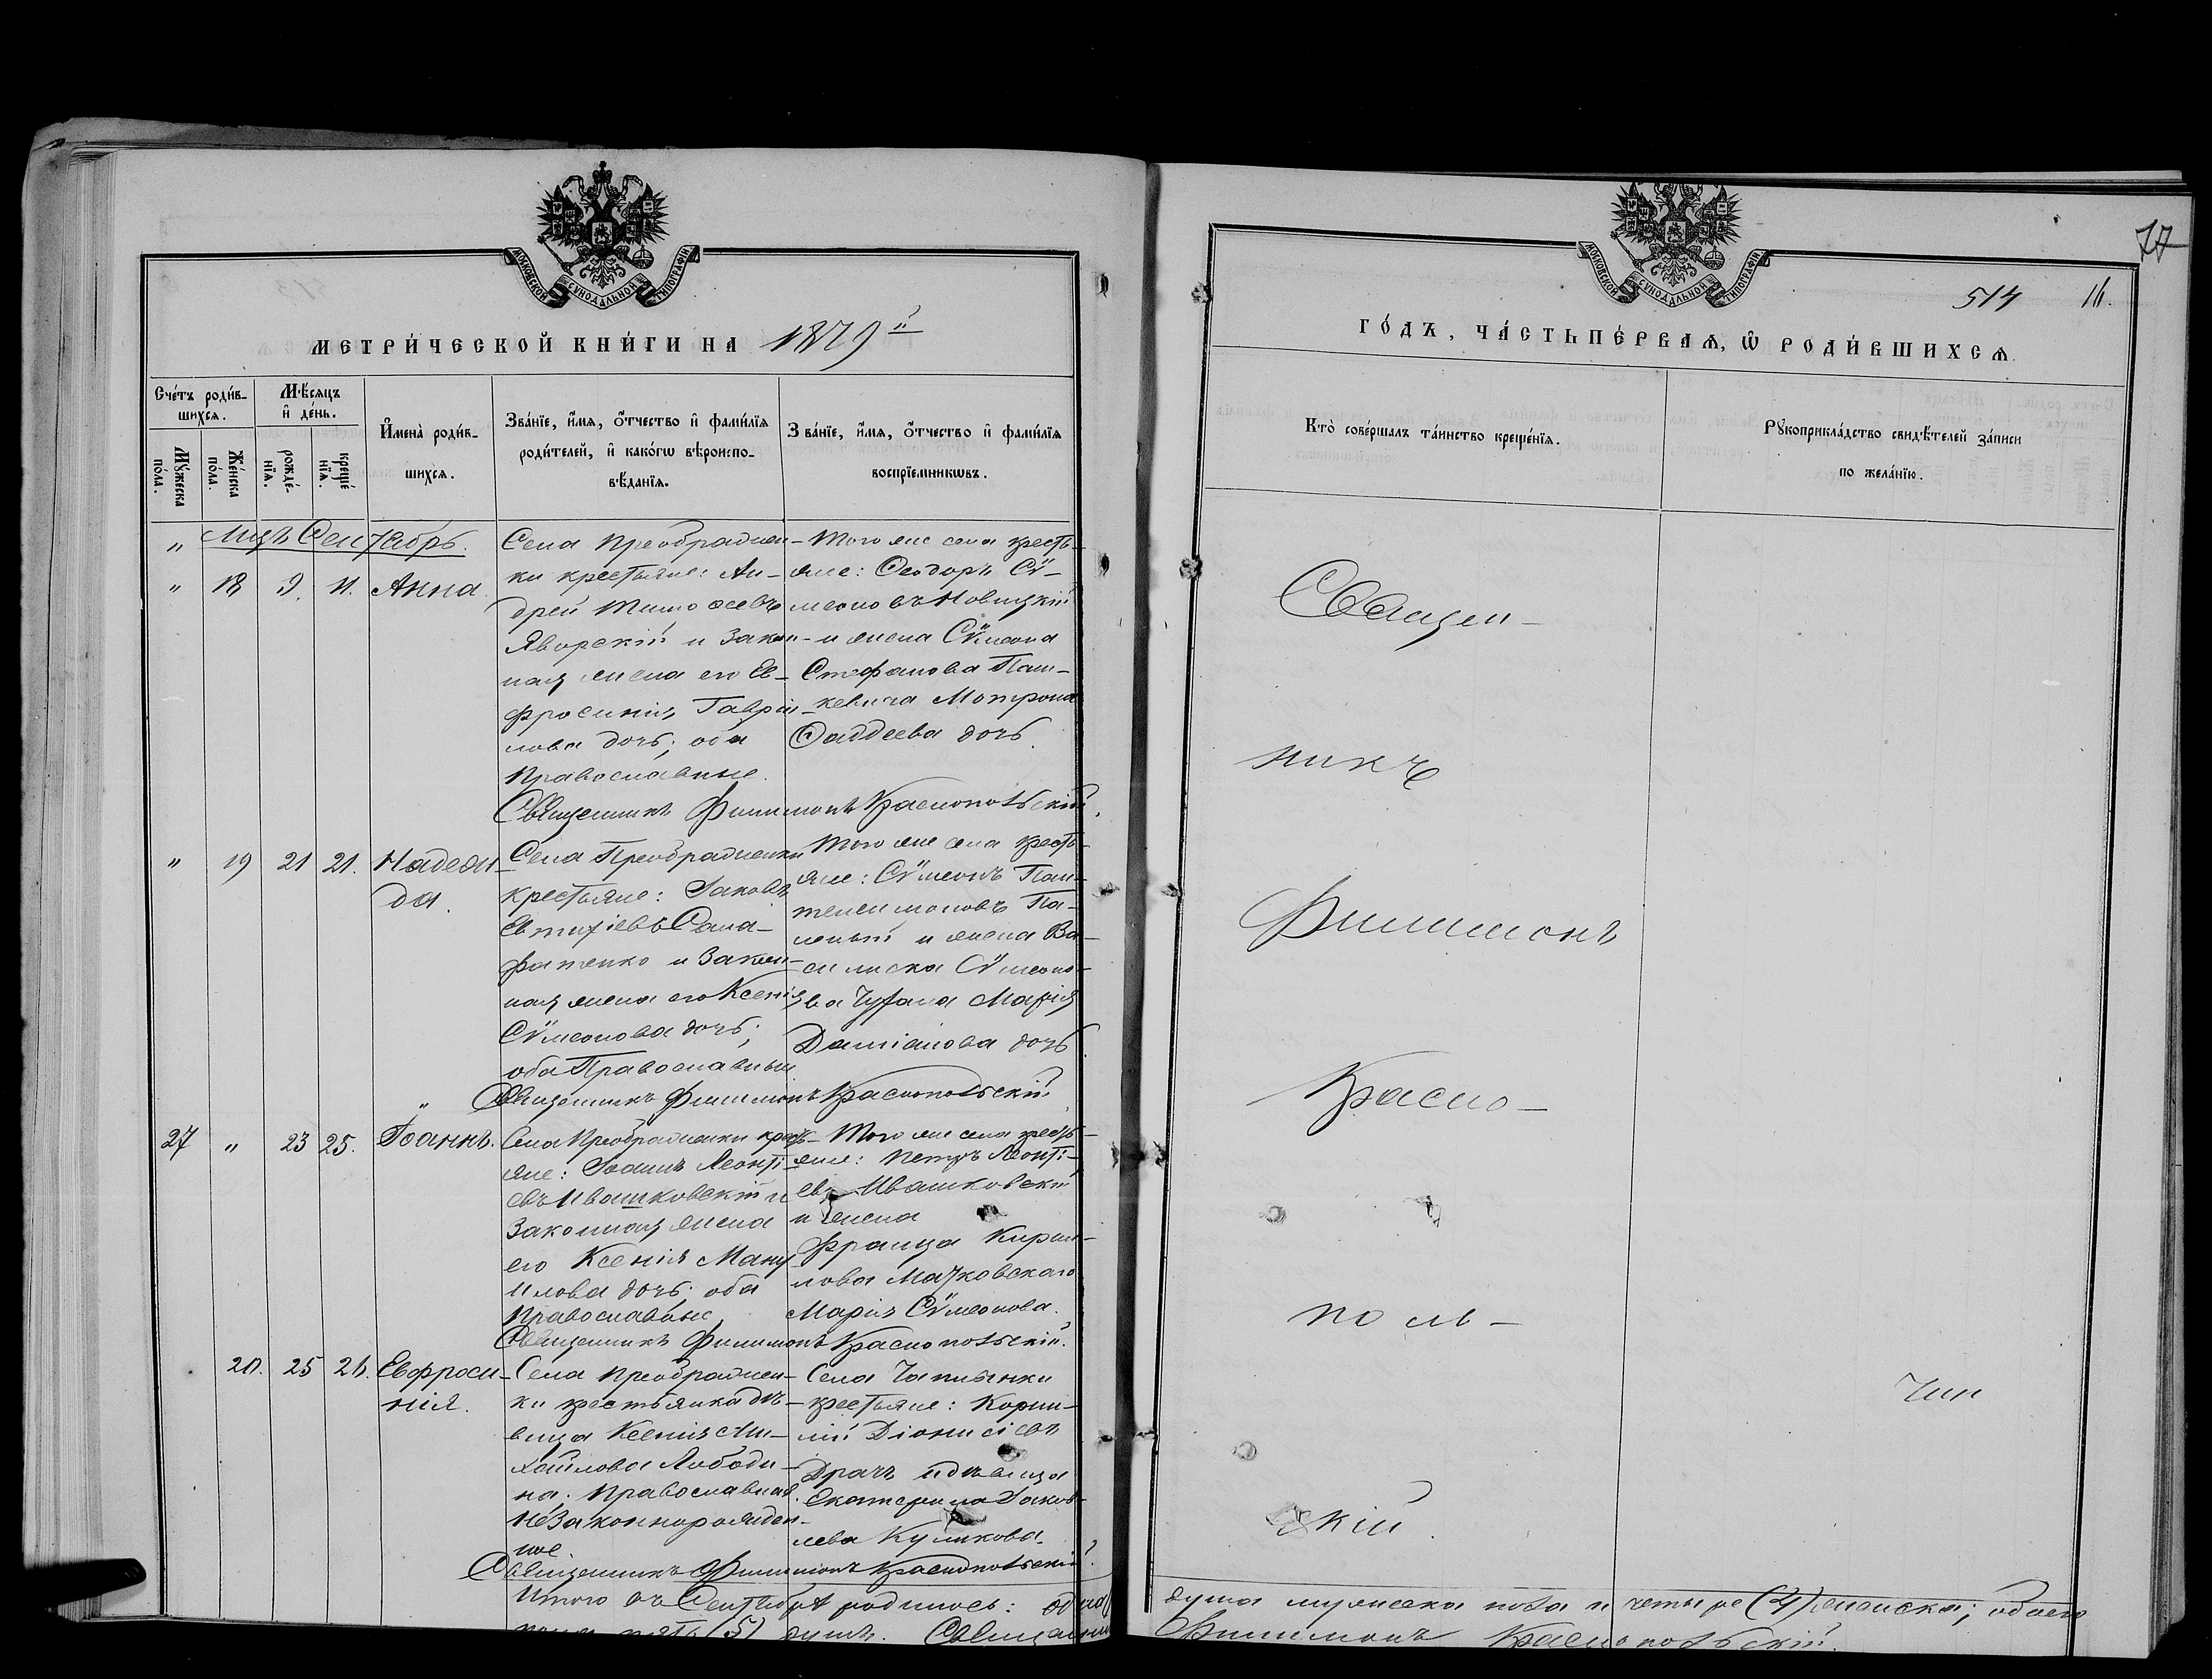 МОСКОВСКОЙ СѴНОДАЛЬНОЙ ТИПОГРАФІИ
МЕТРИ́ЧЕСКОЙ КНИ́ГИ НА 1879й
Сче́тъ роди́в-
шихся.
Мѣ́сяцъ
и҆ де́нь.
Мꙋ́жеска по́ла.
Же́нска по́ла.
рожде́-нїѧ.
креще́-нїѧ.
И҆мена̀ роди́в-
шихся.
Зва́нїе, и҆́мѧ, ѻ҆́тчество и҆ фами́лїѧ
роди́телей, и҆ како́гѡ вѣроиспо-
вѣ́данїѧ.
Зва́нїе, и҆́мѧ, ѻ҆́тчество и҆ фами́лїѧ
воспрїе́мникѡвъ.
Мцъ Сентябрь.
" 18 9. 11. Анна.
Села Преображен-
ки крестьяне: Ан-
дрей Тимофеевъ
Яворскій и закон-
ная жена его Ев-
фросинія Гаврiи-
лова дочь; оба
Православные.
Того же села кресть-
яне: Ѳеодоръ Сѵ-
меоновъ Новицкій
и жена Сѵмеона
Стефанова Паш-
кевича Мотрона
Ѳаддеева дочь.
Священникъ Филимонъ Краснопольскій.
" 19 21 21. Надеж-
да.
Села Преображенки
крестьяне: Іаковъ
Евтихіевъ
и закон-
ная жена его Ксенія
Сѵмеонова дочь;
оба Православные
Того же села кресть-
яне: Сѵмеонъ Пан-
телеимоновъ Па-
и жена Ва-
силиска Сѵмеоно-
ва Марія
Даміанова дочь.
Священникъ Филимонъ Краснопольскій
27 " 23 25. Іоаннъ.
Села Преображенки кресть-
яне: Іоаннъ Леонті-
евъ Ивашковскій и
законная жена
его Ксенія Ману-
илова дочь; оба
Православные
Того же села кресть-
яне: Петръ Леонті-
евъ Ивашковскій
и жена
Франца Кирил-
лова Мачковскаго
Марія Сѵмеонова.
Священникъ Филимонъ Краснопольскій.
20. 25 26. Евфроси-
нія.
Села Преображен-
ки крестьянка дѣ-
вица Ксенія Ми-
хайлова Лободи-
на; Православная.
Незаконнорожден-
ное
Села Чаплынки
крестьяне: Корни-
лій Діонисіевъ
Драчъ и дѣвица
Екатерина Іаков-
лева Куликова.
Священникъ Филимонъ Краснопольскій.
Итого въ Сентябрѣ родилось: одна
пола пять (5) душъ. Священникъ
77
514 16.
МОСКОВСКОЙ СѴНОДАЛЬНОЙ ТИПОГРАФІИ
ГО́ДЪ, ЧА́СТЬ ПЕ́РВАѦ, Ѡ РОДИ́ВШИХСѦ.
Кто̀ соверша́лъ та́инство креще́нїѧ.
Рꙋкоприкла́дство свидѣ́телей за́писи
по жела́нїю.
Священ-
никъ
Филимонъ
Красно-
поль-
скій.
Чин
душа мужеска пола и четыре (4) женска; обоего
Филимонъ Краснопольскій.